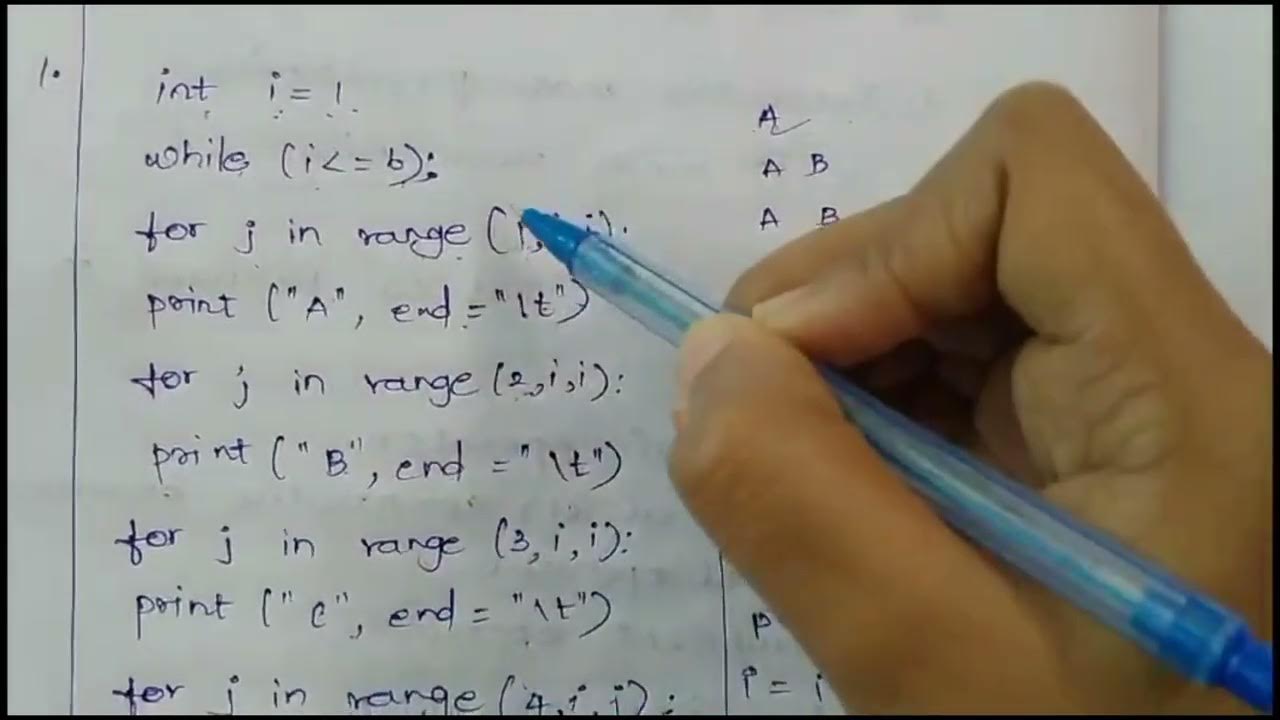 1.
int i = 1
while (i <= b):
for j in range (1, i):
print ("A", end = "\t")
for j in range (2,i,i):
print ("B", end = "\t")
for j in range (3,i,i):
print ("C", end = "\t")
for j in range (4,i,i):
A
A B
A B
P
i = i